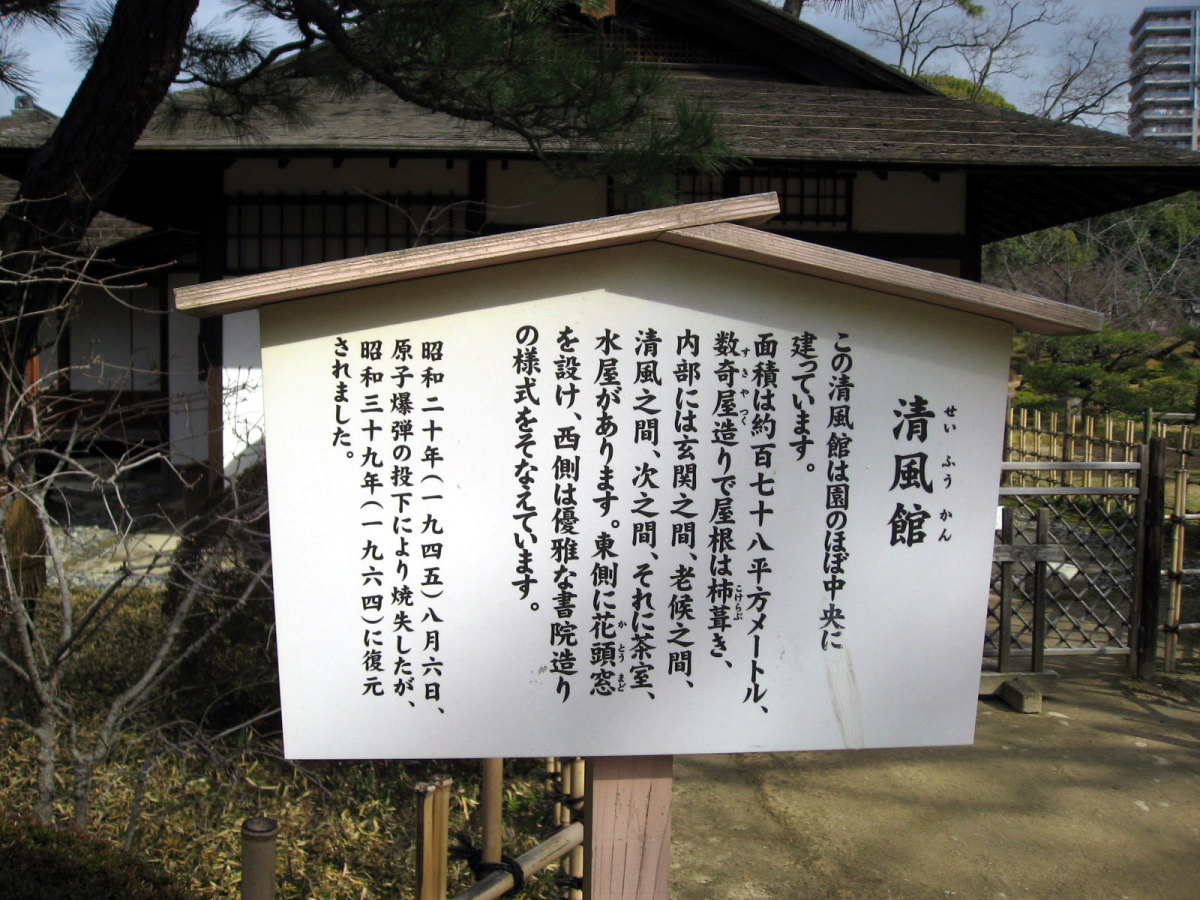 清風館
せいふうかん
この清風館は園のほぼ中央に
建っています。
面積は約百七十八平方メートル、
数奇屋造りで屋根は杮葺き、
すきやつく
こけらぶ
内部には玄関之間、老候之間、
清風之間、次之間、それに茶室、
水屋があります。東側に花頭窓
かとうまど
を設け、西側は優雅な書院造り
の様式をそなえています。
昭和二十年(一九四五)八月六日、
原子爆弾の投下により焼失したが、
昭和三十九年(一九六四)に復元
されました。